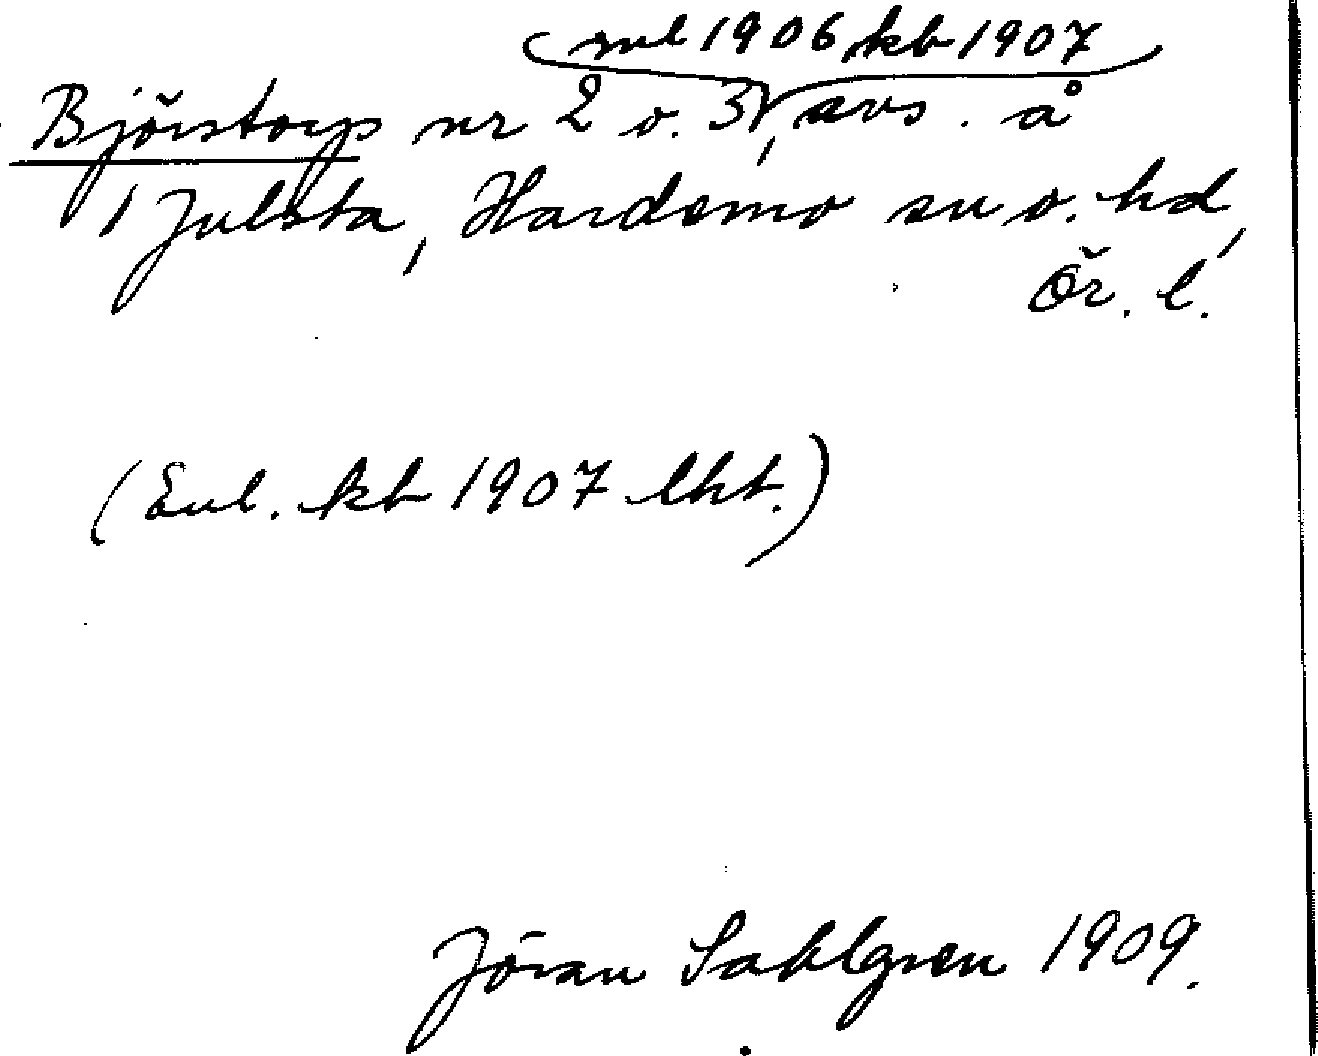 ml 1906 kb 1907
Björstorp nr 2 o. 3, avs. å
1 Julsta, Hardemo sn o. hd,
Ör. l.
(Enl. kb 1907 lht.)
Jöran Sahlgren 1909.